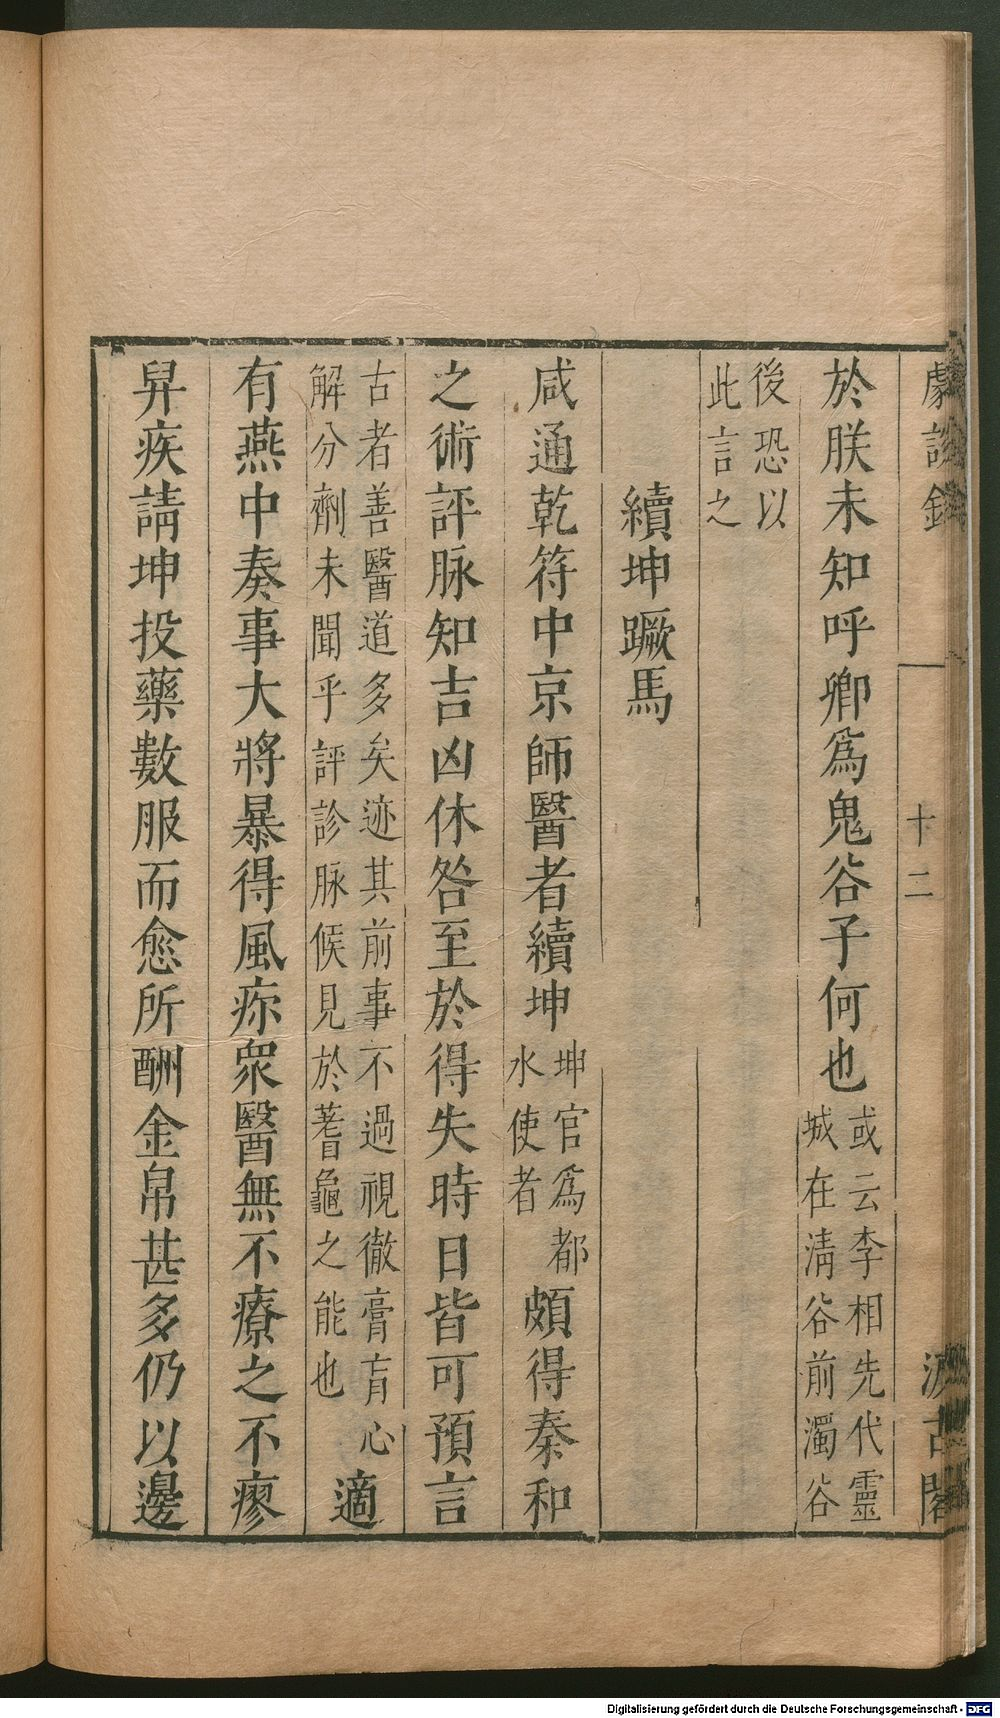 劇談錄 十二 汲古閣
於朕未知呼卿爲鬼谷子何也或云李相先代靈城在淸谷前濁谷
後恐以此言之
續坤蹶馬
咸通乾符中京師醫者續坤坤官爲都水使者頗得秦和
之術評脉知吉凶休咎至於得失時日皆可預言
古者善醫道多矣迹其前事不過視徹膏肓心解分劑未聞乎評診脉候見於蓍龜之能也適
有燕中奏事大將暴得風疾眾醫無不療之不瘳
舁疾請坤投藥數服而愈所酬金帛甚多仍以邊
Digitalisierung gefördert durch die Deutsche Forschungsgemeinschaft - DFG